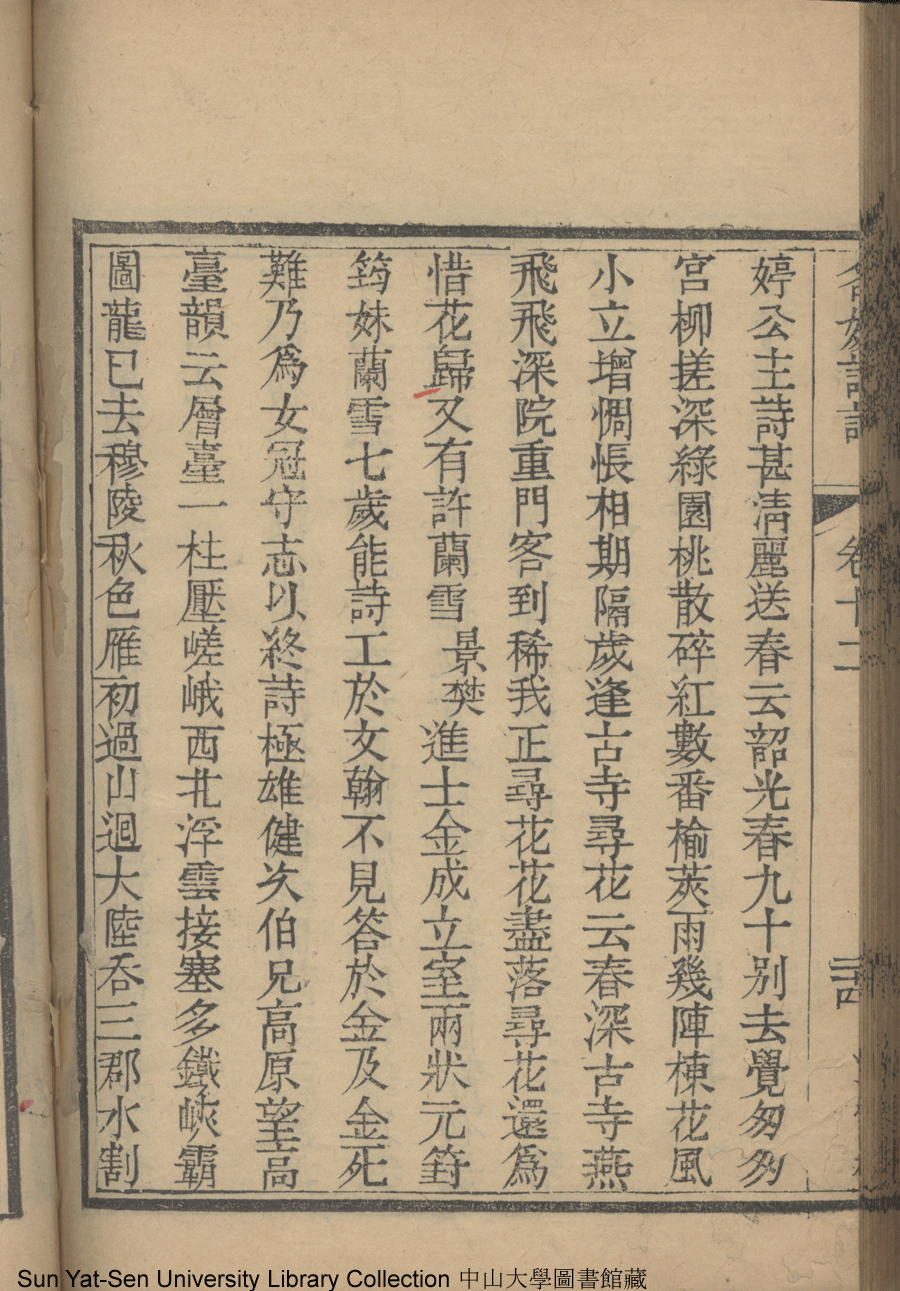 名媛詩話 卷十二
婷公主詩甚清麗送春云韶光春九十别去覺匆匆
宮柳搓深綠園桃散碎紅數番榆莢雨幾陣楝花風
小立增惆悵相期隔歲逢古寺尋花云春深古寺燕
飛飛深院重門客到稀我正尋花花盡落尋花還爲
惜花歸又有許蘭雪景樊進士金成立室兩狀元篈
筠妹蘭雪七歲能詩工於文翰不見答於金及金死
難乃爲女冠守志以終詩極雄健次伯兄高原望高
臺韻云層臺一柱壓嵯峨西北浮雲接塞多鐵峽霸
圖龍已去穆陵秋色雁初過山迴大陸吞三郡水割
Sun Yat-Sen University Library Collection 中山大學圖書館藏